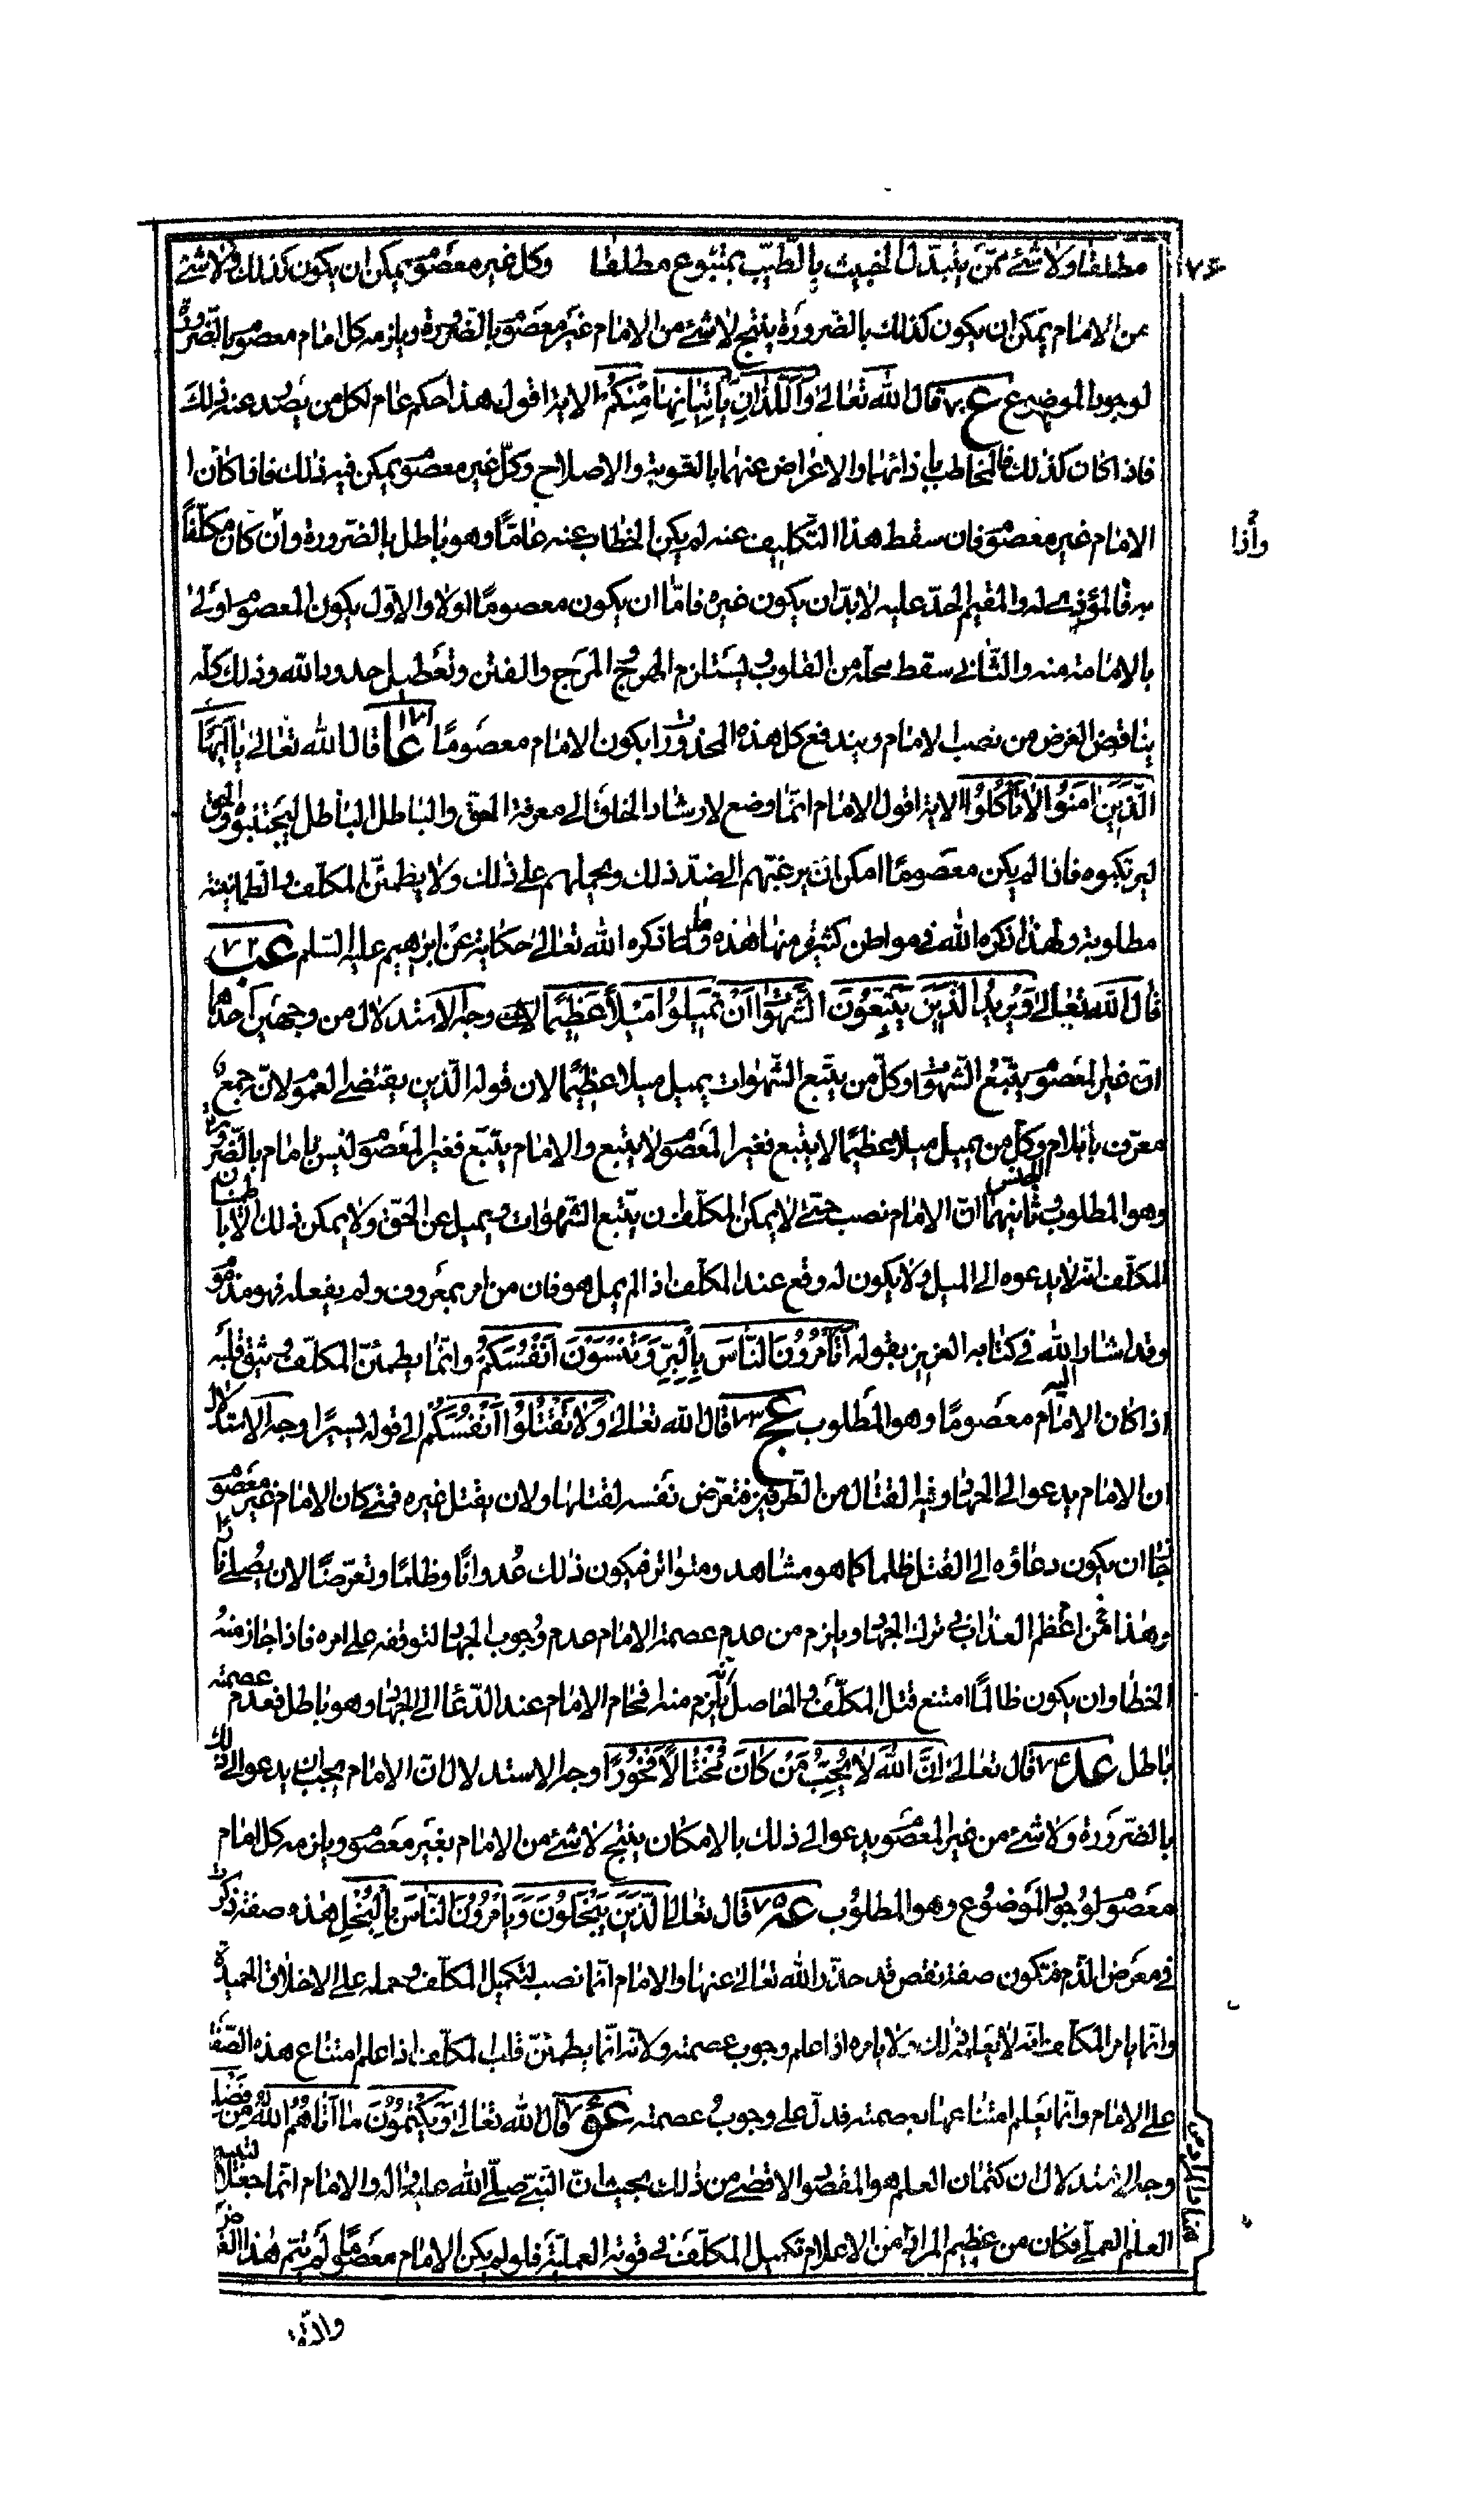 ٧٤
مطلقا ولا شئ ممّن يتبدّل الخبيث بالطّيّب بمتبوع مطلقا وكل غير معصوم يمكن ان يكون كذلك ولا شئ
من الامام يمكن ان يكون كذلك بالضّرورة ينتج لا شئ من الامام غير معصوم بالضّرورة ويلزمه كل امام معصوم بالضّرورة
لوجود الموضوع ع قال الله تعالى وَالَّلذَانِ يَأْتِيَانِهَا مِنْكُمْ الاية اقول هذا حكم عام لكل من يصد عنه ذلك
فاذا كان كذلك فالمخاطب بايذائهما والاعراض عنهما بالتوبة والاصلاح وكلّ غير معصوم يمكن فيه ذلك فاذا كان ا
الامام غير معصوم فان سقط هذا التّكليف عنه لم يكن الخطاب عنه عامّا وهو باطل بالضّرورة وان كان مكلّفاً
واذا
به فالمؤذي له والمقيم الحدّ عليه لابدّ ان يكون غيره فامّا ان يكون معصومًا اولا والاوّل يكون المعصوم اولى
بالامامة منه والثّاني سقط محلّه من القلوب ويستلزم الهرج والمرج والفتن وتعطيل حدود الله وذلك كلّه
يناقض الغرض من نصب الامام ويندفع كل هذه المحذورات بكون الامام معصومًا عا ٧١ قال الله تعالى يا اَيُّهَا
الَّذينَ امَنُوا لا تَأْكُلُوا الاية اقول الامام انّما وضع لارشاد الخلق الى معرفة الحق والباطل الباطل ليجتنبوه والحق
ليرتكبوه فاذا لم يكن معصومًا امكن ان يرغبّهم الى ضدّ ذلك ويحملهم على ذلك ولا يطمئنّ المكلّف والطمانينة
مطلوبة ولهذا ذكره الله في مواطن كثيرة منها هذه ومنها ما ذكره الله تعالى حكاية عن ابرهيم عليه السّلم عب ٧٢
قال الله تعالى وَيُرِيدُ الَّذِينَ يَتَّبِعُونَ الشَّهَوَاتِ اَنْ تَمِيلُوا مَيْلاً عَظِيمًا الاية وجه الاستدلال من وجهين احدهما
انّ غير المعصوم يتّبع الشّهوات وكلّ من يتّبع الشّهوات يميل ميلا عظيمًا لان قوله الّذين يقتضى العموم لانّه جمع
معرّف باللام وكلّ من يميل ميلا عظيمًا لا يتبع فغير المعصوم لا يتبع والامام يتّبع فغير المعصوم ليس بامام بالضّرورة
وهو المطلوب ثانيهما انّ الامام نصب حتّى لا يمكن المكلّف ان يتّبع الشّهوات ويميل عن الحقّ ولا يمكن ذلك الّا باطمئنان
المكلّف انّه لا يدعوه الى الميل ولا يكون له وقع عند المكلّف اذا لم يمل هو فان من امر بمعروف ولم يفعله فهو مذموم
وقد اشار الله اليه في كتابه العزيز بقوله اَتَأْمُرُونَ النَّاسَ بِالْبِرِّ وَتَنْسَوْنَ اَنْفُسَكُمْ وانّما يطمئنّ المكلّف ويثق قلبه
اذا كان الامام معصومًا وهو المطلوب عج ٧٣ قال الله تعالى وَلا تَقْتُلُوا اَنْفُسَكُمْ الى قوله يسيرًا وجه الاستدلال
ان الامام يدعو الى الجهاد وفيه القتال من الطرفين فتعرّض نفسه لقتلها ولان يقتل غيره فمتى كان الامام غير معصوم
جاز ان يكون دعاؤه الى القتل ظلما كما هو مشاهد ومتواتر فيكون ذلك عُدوانًا وظلمًا وتعرّضًا لان يُصلى نارا
وهذا من اعظم العذاب في ترك الجهاد ويلزم من عدم عصمة الامام عدم وجوب الجهاد لتوقفه على امره فاذا جاز منه
الخطا وان يكون ظالمًا امتنع قتل المكلّف والحاصل انّه يلزم منه افحام الامام عند الدّعا الى الجهاد وهو باطل فعدم عصمته
باطل عد ٧٤ قال تعالى اِنَّ اللهَ لا يُحِبُّ مَنْ كَانَ مُخْتَالاً فَخُورًا وجه الاستدلال انّ الامام يجب ان يدعو الى ذلك
بالضّرورة ولا شئ من غير المعصوم يدعو الى ذلك بالامكان ينتج لا شئ من الامام بغير معصوم ويلزمه كل امام
معصوم لوجود الموضوع وهو المطلوب عه ٧٥ قال تعالى الَّذِينَ يَبْخَلُونَ وَيَأْمُرُونَ النَّاسَ بِالْبُخْلِ هذه صفة ذكرت
في معرض الذّم فتكون صفة نقص قد حذّر الله تعالى عنها والامام انّما نصب لتكميل المكلّف وحمله على الاخلاق الحميدة
وانّما يامن المكلّف انّه لا يفعل ذلك ولا يامره اذا علم وجوب عصمته ولانّه انّما يطمئنّ قلب المكلّف اذا علم امتناع هذه الصّفة
على الامام وانّما يعلم امتناعها بعصمته فدلّ على وجوب عصمته عو ٧٦ قال الله تعالى وَيَكْتُمُونَ مَا آتَاهُمُ اللهُ مِنْ فَضْلِهِ
وجه الاستدلال ان كتمان العلم هو المقصود الاقصى من ذلك بحيث انّ النّبيّ صلّى الله عليه واله والامام انّما جعلا لتتميم
العلم العملي فكان من عظيم المراد من الاعلام تكميل المكلّف في قوته العملية فلو لم يكن الامام معصومًا لم يتم هذا الغرض